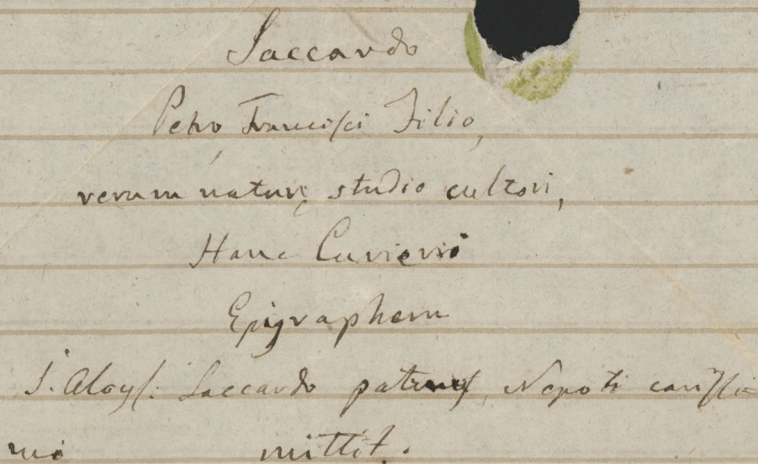 Saccardo
Petro Francisci Filio,
rerum naturę studio cultori,
Hanc Cuvierii
Epigraphem
J. Aloys: Saccardo patruus, Nepoti carissi-
mo mittit.